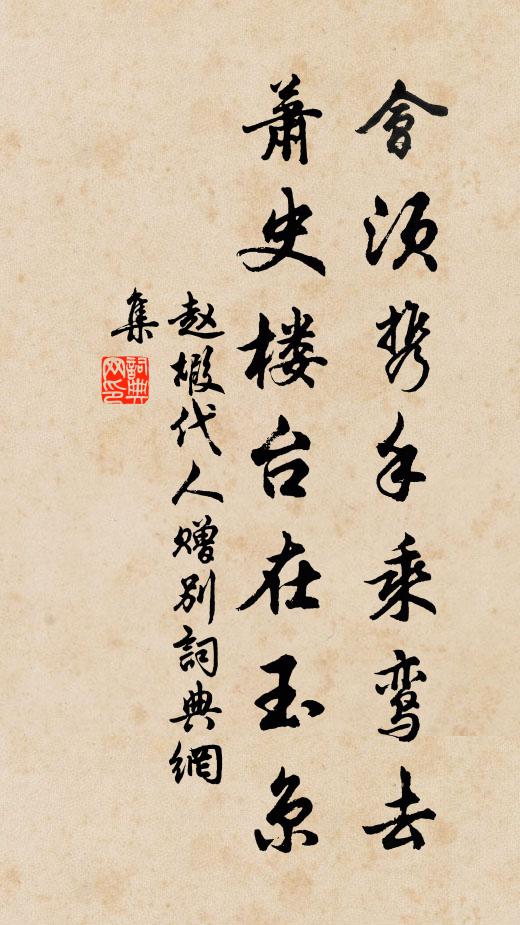 會须携手乘鸾去
蕭史楼台在玉京
赵嘏代人赠别詞典網
集
詞典网印